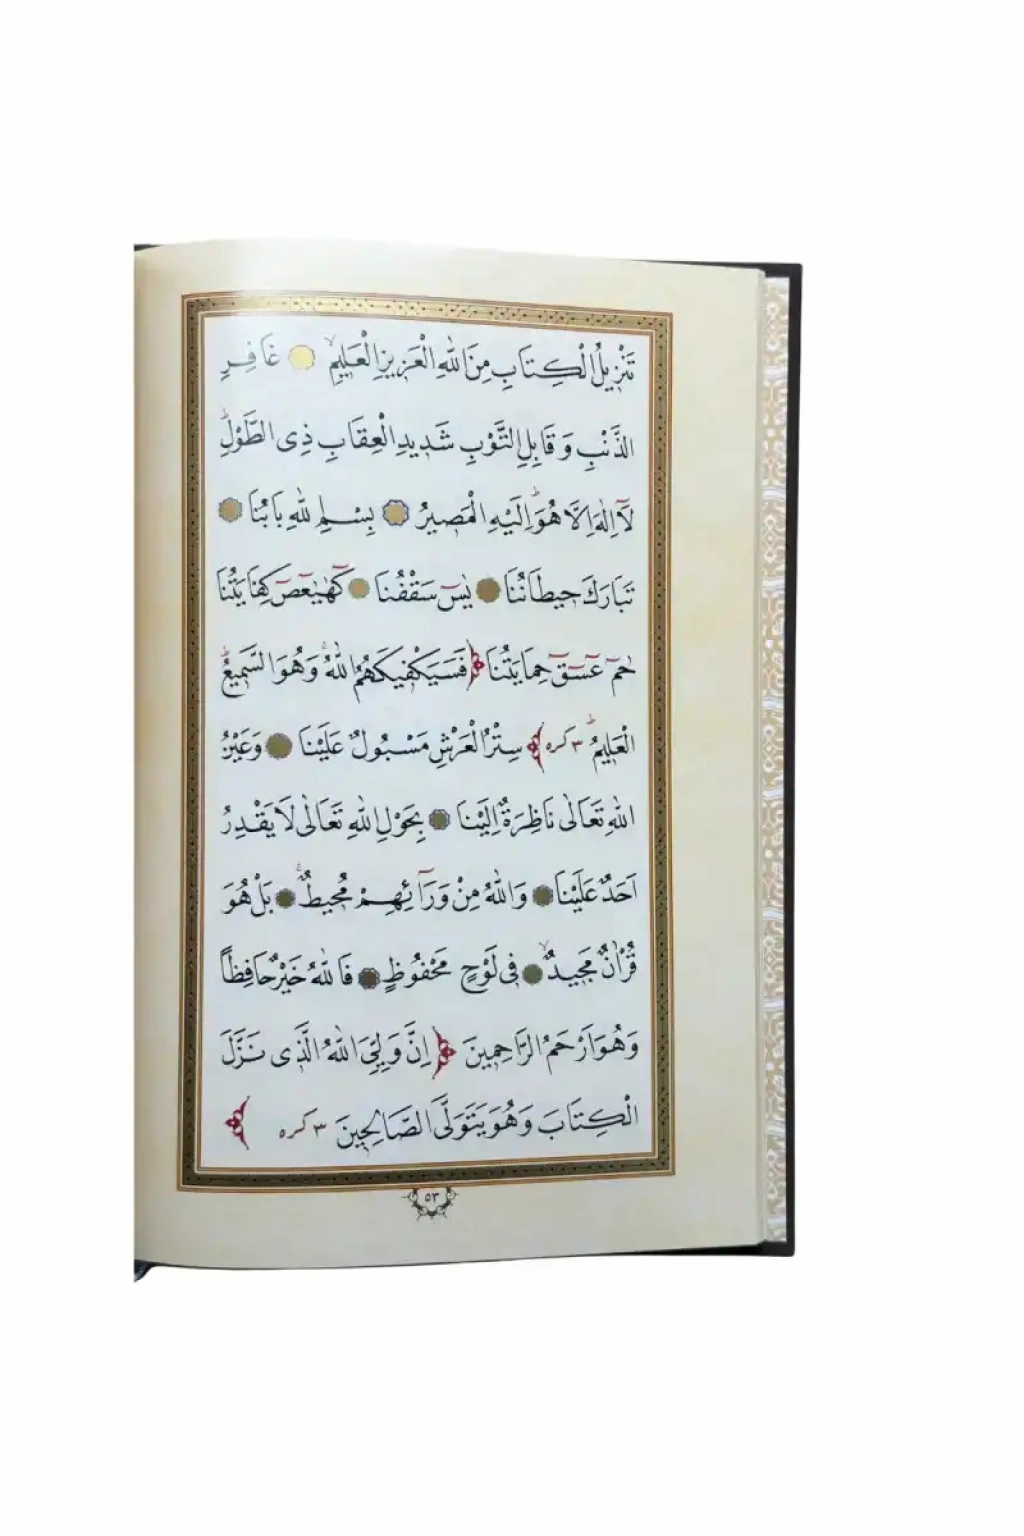 تَنْزِيلُ الْكِتَابِ مِنَ اللّٰهِ الْعَزِيزِ الْعَلِيمِۙ غَافِرِ
الذَّنْبِ وَقَابِلِ التَّوْبِ شَدِيدِ الْعِقَابِ ذِى الطَّوْلِۜ
لَآ اِلٰهَ اِلَّا هُوَۜ اِلَيْهِ الْمَصِيرُ بِسْمِ اللّٰهِ بَابُنَا
تَبَارَكَ حِيطَانُنَا يٰسٓ سَقْفُنَا كٓهٰيٰعٓصٓ كِفَايَتُنَا
حٰمٓ عٓسٓقٓ حِمَايَتُنَا ﴿فَسَيَكْفِيكَهُمُ اللّٰهُۚ وَهُوَ السَّمِيعُ
الْعَلِيمُۜ ٣ كره﴾ سِتْرُ الْعَرْشِ مَسْبُولٌ عَلَيْنَا وَعَيْنُ
اللّٰهِ تَعَالٰى نَاظِرَةٌ اِلَيْنَا بِحَوْلِ اللّٰهِ تَعَالٰى لَا يَقْدِرُ
اَحَدٌ عَلَيْنَا وَاللّٰهُ مِنْ وَرَآئِهِمْ مُحِيطٌۚ بَلْ هُوَ
قُرْاٰنٌ مَجِيدٌۙ فِى لَوْحٍ مَحْفُوظٍ فَاللّٰهُ خَيْرٌ حَافِظًا
وَهُوَ اَرْحَمُ الرَّاحِمِينَ ﴿اِنَّ وَلِيِّىَ اللّٰهُ الَّذِى نَزَّلَ
الْكِتَابَ وَهُوَ يَتَوَلَّى الصَّالِحِينَ ٣ كره﴾
٥٣